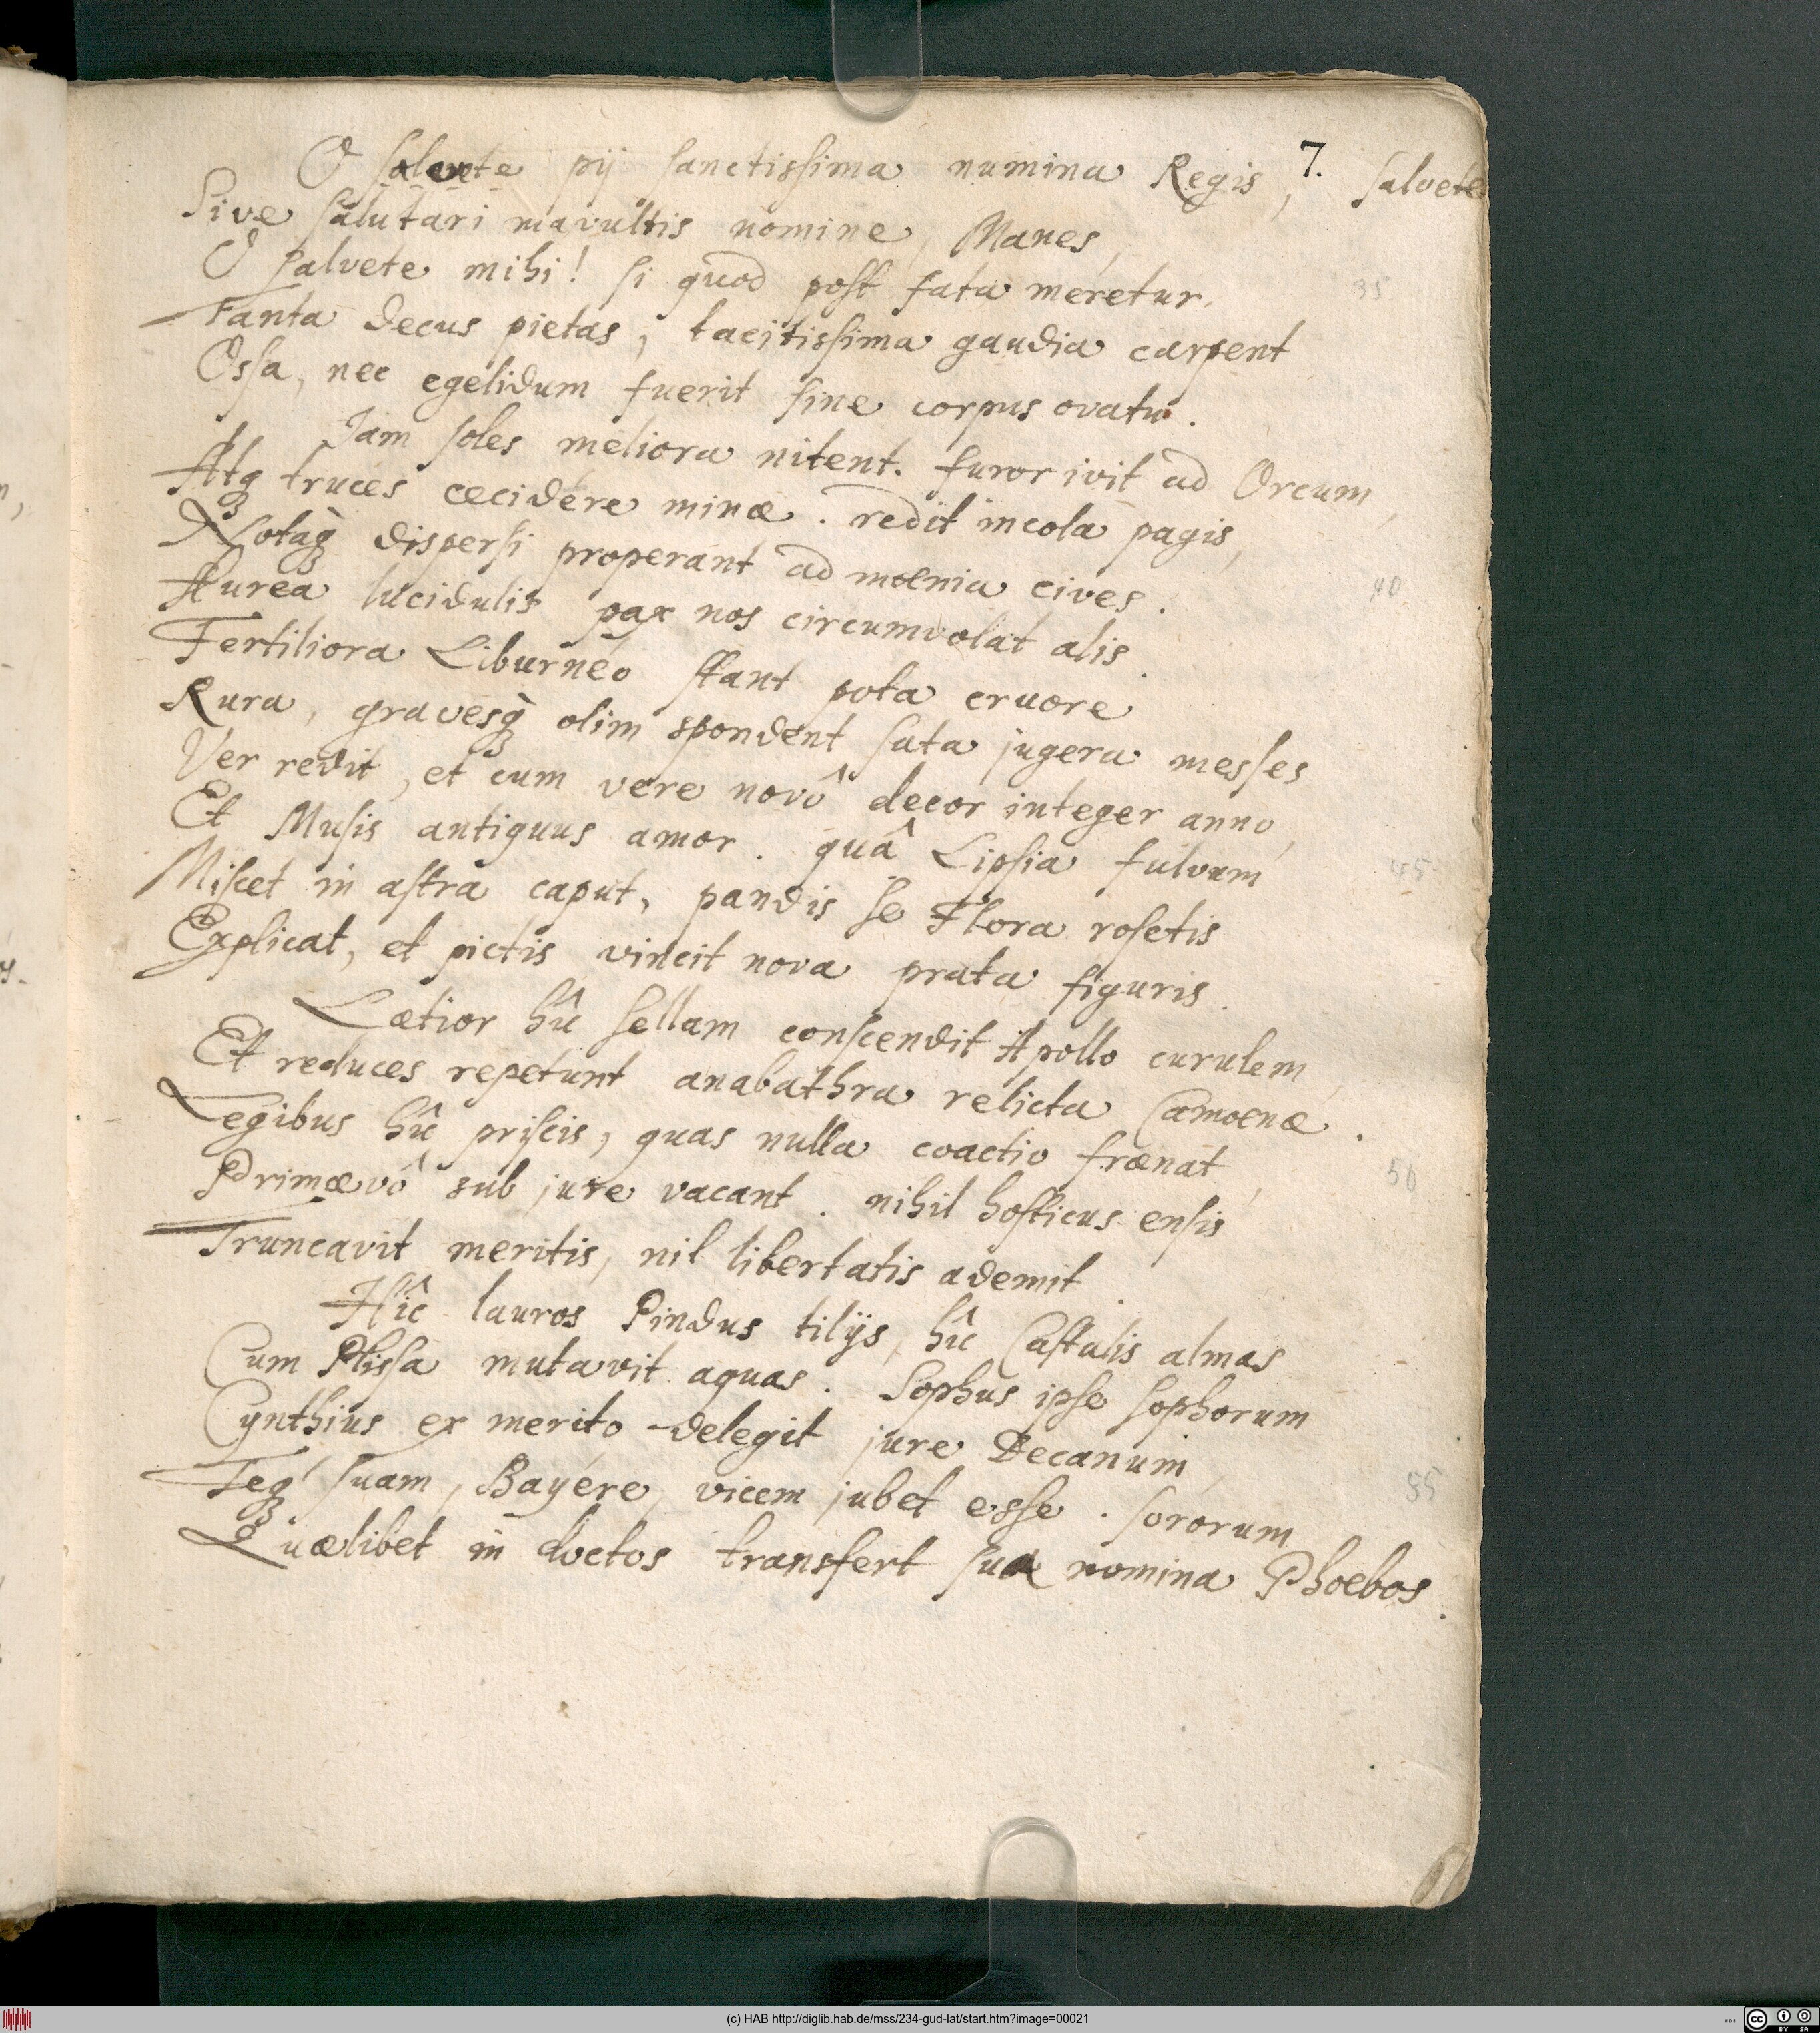 7.
O salvete pij sanctissima numina Regis, salvete
Sive salutari mavultis nomine, Manes,
O salvete mihi! si quod post fata meretur
35
Tanta decus pietas, tacitissima gaudia carpent
Ossa, nec egelidum fuerit sine corpus ovatu.
Jam soles meliora nitent. furor ivit ad Orcum,
Atq truces cecidêre minæ. redit incola pagis,
Notaq dispersi properant ad moenia cives.
40
Aurea lucidulis pax nos circumvolat alis.
Fertiliora Liburnéo stant pota cruore
Rura, gravesq olim spondent sata jugera messes
Ver redit, et cum vere novô decor integer anno,
Et Musis antiquus amor. quâ Lipsia fulvum
45
Miscet in astra caput, pandis se Flora rosetis
Explicat, et pictis vincit nova prata figuris.
Lætior hîc sellam conscendit Apollo curulem,
Et reduces repetunt anabathra relicta Camoenæ.
Legibus hîc priscis, quas nulla coactio frænat,
50
Primævô sub jure vacant. nihil hosticus ensis
Truncavit meritis, nil libertatis ademit.
Hîc lauros Pindus tilijs, hîc Castalis almas
Cum Plissa mutavit aquas. Sophus ipse sophorum
Cynthius ex merito delegit jure Decanum
55
Teq suam, Bayére, vicem jubet esse. sororum
Quælibet in doctos transfert sua nomina Phoebos.
(c) HAB http://diglib.hab.de/mss/234-gud-lat/start.htm?image=00021